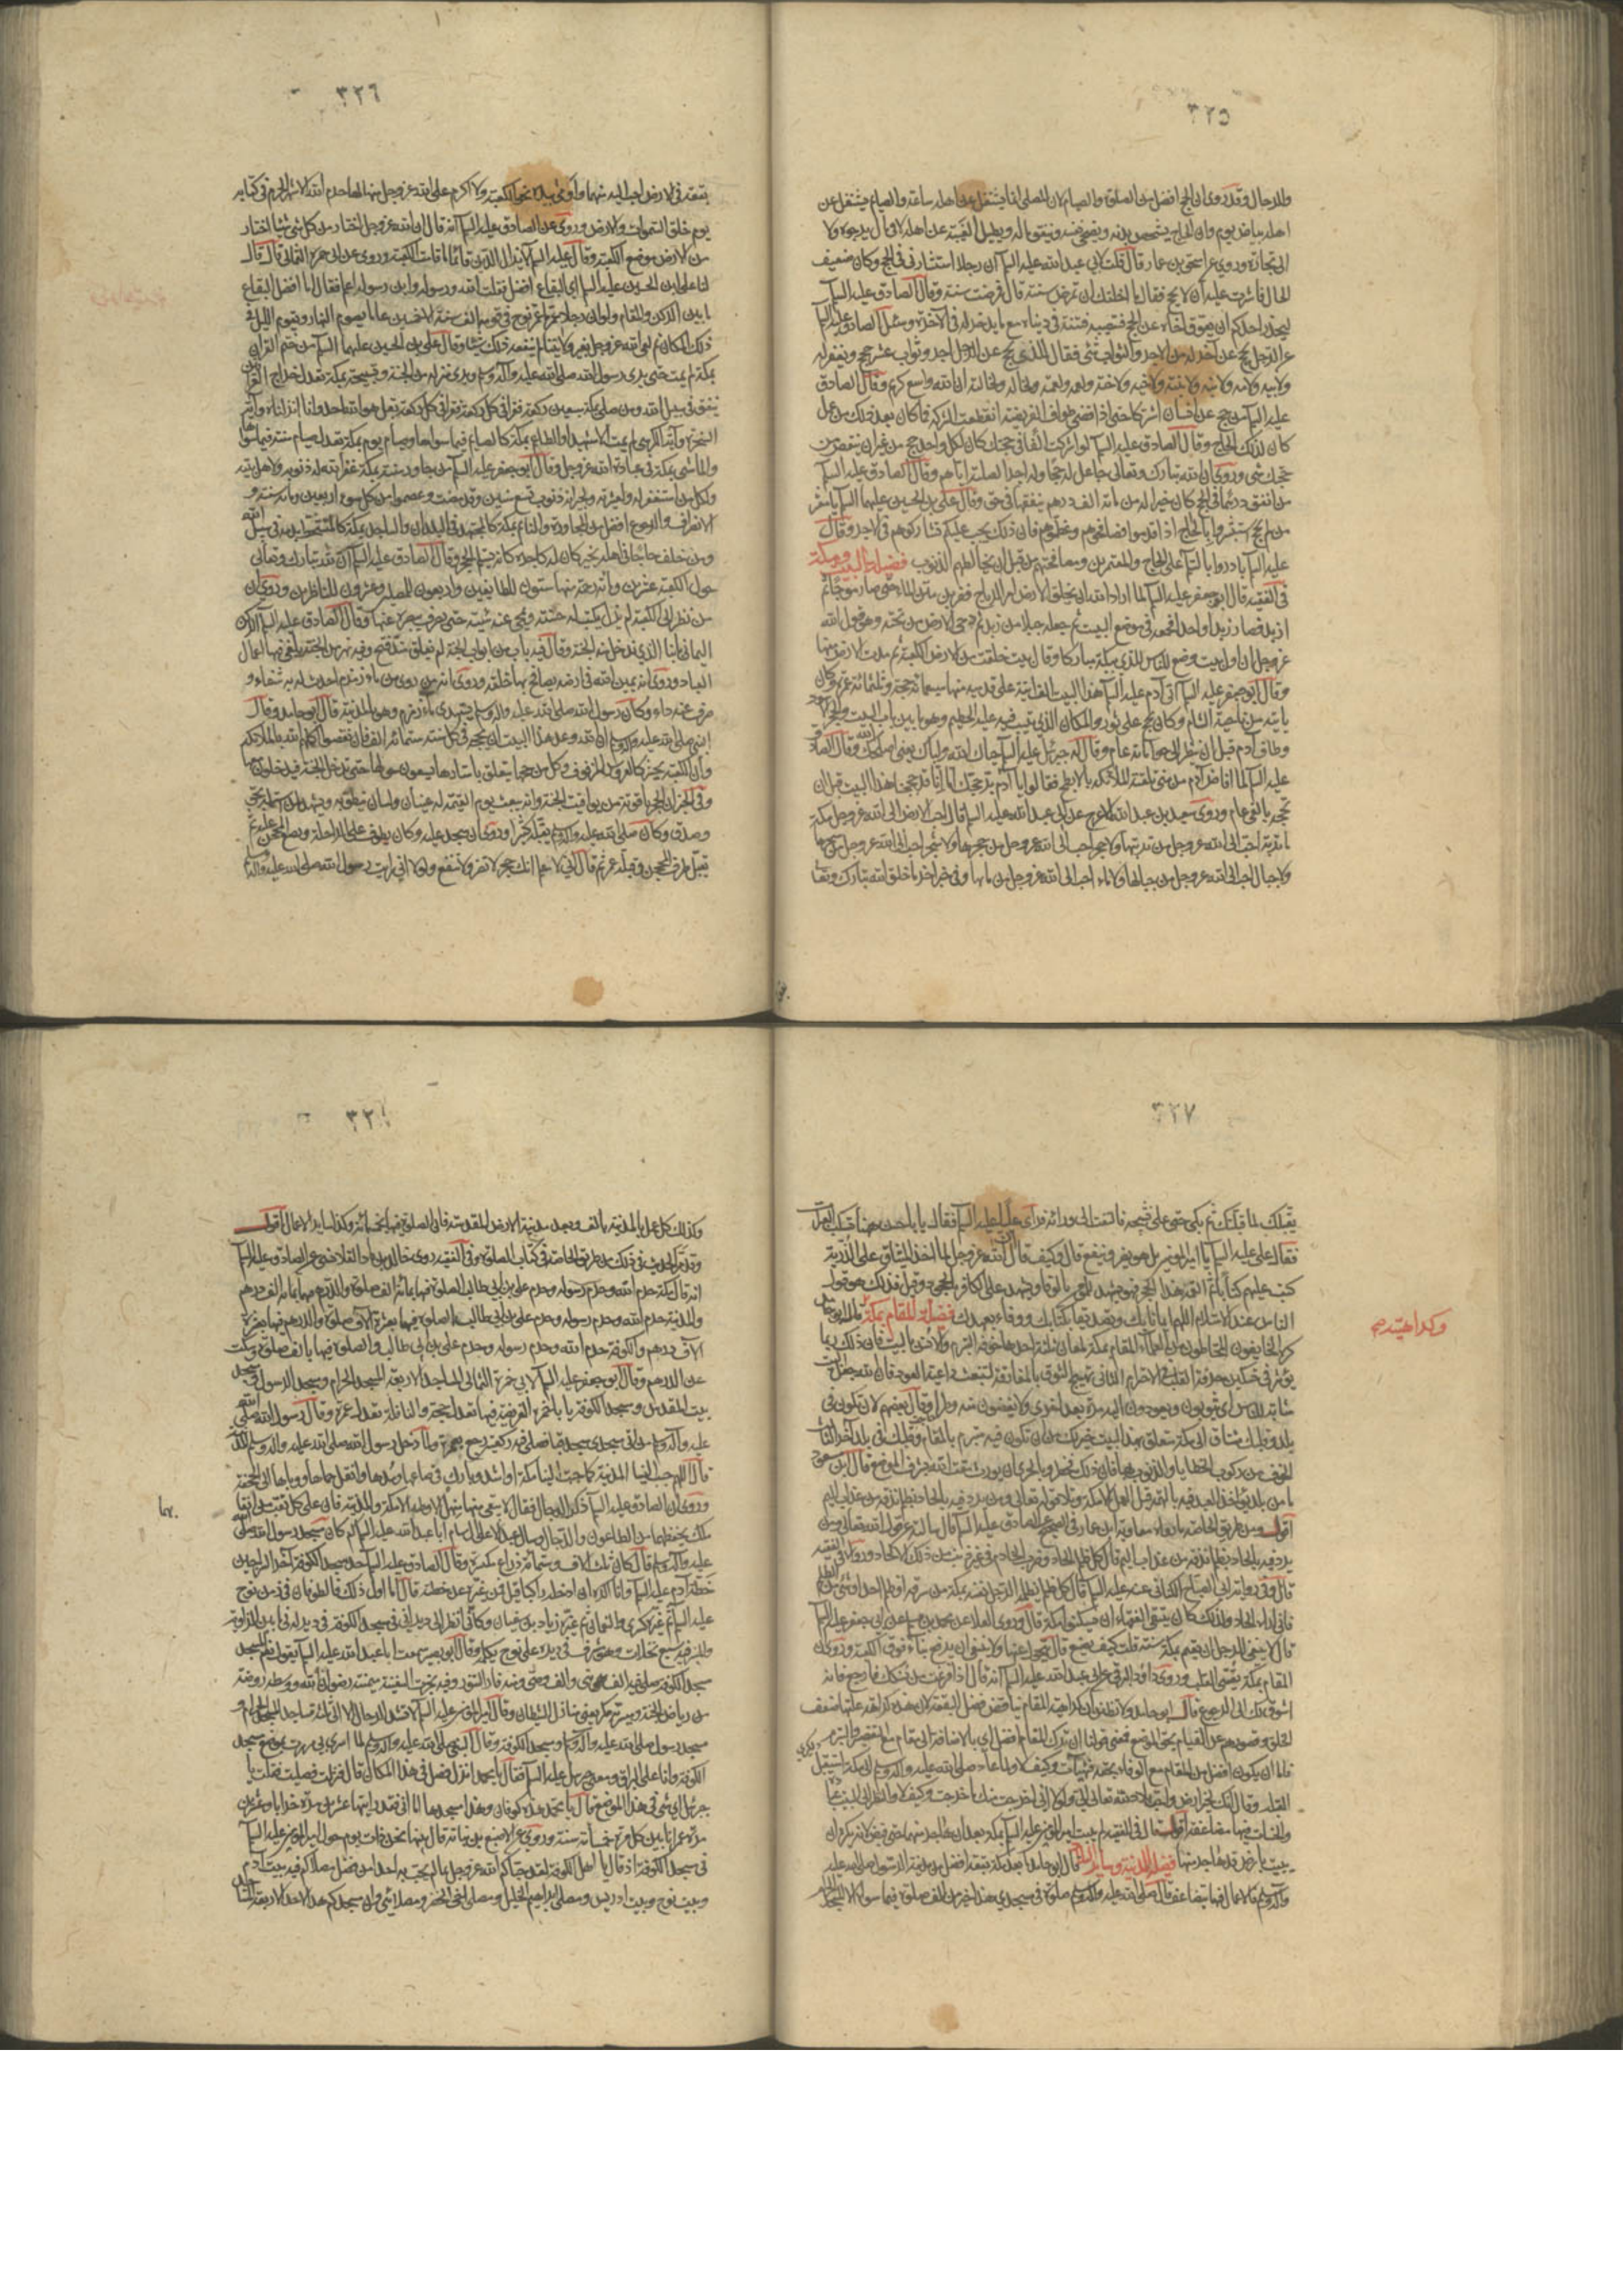 ٣٢٥
والمرحال وقد روي ان الحج افضل من الصلوة والصيام لان المصلي انما يشتغل عن اهله ساعة والصيام يشتغل عن
اهله بياض يوم وان الحاج يشخص بدنه ويضحي نفسه وينفق ماله ويطيل الغيبة عن اهله لا في مال يرجوه ولا
الى تجارة وروي عن اسحق بن عمار قال قلت لابي عبد الله عليه السلم ان رجلا استشارني في الحج وكان ضعيف
الحال فاشرت عليه أن لا يحج فقال ما اخلقك ان تمرض سنة قال فمرضت سنة وقال الصادق عليه السلم
ليحذر احدكم ان يعوق اخاه عن الحج فتصيبه فتنة في دنياه مع ما يدخر له في الاخرة وسئل الصادق عليه السلم
عن الرجل يحج عن آخر له من الاجر والثواب شئ فقال للذي يحج عن الرجل اجر وثواب عشر حجج ويغفر له
ولابيه ولامه ولابنه ولابنته ولاخيه ولاخته ولعمه ولعمته ولخاله ولخالته ان الله واسع كريم وقال الصادق
عليه السلم من حج عن انسان اشتركا حتى اذا قضى طواف الفريضة انقطعت الشركة فما كان بعد ذلك من عمل
كان لذلك الحاج وقال الصادق عليه السلم لو اشركت الفا في حجتك كان لكل واحد حج من غير ان ينقص من
حجك شئ وروي ان الله تبارك وتعالى جاعل له حجا وله اجرا لصلته اياهم وقال الصادق عليه السلم
من انفق درهما في الحج كان خيرا له من مائة الف درهم ينفقها في حق وقال علي بن الحسين عليهما السلم يا معشر
من لم يحج استبشروا بالحاج اذا قدموا فصافحوهم وعظموهم فان ذلك يجب عليكم تشاركوهم في الاجر وقال
عليه السلم بادروا بالسلم على الحاج والمعتمرين ومصافحتهم من قبل ان تخالطهم الذنوب فضيلة البيت ومكة
في الفقيه قال ابو جعفر عليه السلم لما اراد الله ان يخلق الارض امر الرياح فضربن متن الماء حتى صار موجا ثم
ازبد فصار زبدا واحدا فجمعه في موضع البيت ثم جعله جبلا من زبد ثم دحى الارض من تحته وهو قول الله
عز وجل ان اول بيت وضع للناس للذي ببكة مباركا وقال بيت خلقت من الارض الكعبة ثم مدت الارض منها
وقال ابو جعفر عليه السلم اتى آدم عليه السلم هذا البيت الف اتية على قدميه منها سبعمائة حجة وثلثمائة عمرة وكان
ياتيه من ناحية الشام وكان يحج على ثور والمكان الذي تيب فيه عليه الحطيم وهو ما بين باب البيت والحجر الاسود
وطاف آدم قبل ان ينظر الى حوا مائة عام وقال له جبرئيل عليه السلم حياك الله وبياك يعني اضحكك وقال الصادق
عليه السلم لما افاض آدم من منى تلقته الملائكة بالابطح فقالوا يا آدم بر حجك اما انا قد حججنا هذا البيت قبل ان
تحجه بالفي عام وروي سعيد بن عبد الله الاعرج عن ابي عبد الله عليه السلم قال احب الارض الى الله عز وجل مكة
ما تربة احب الى الله عز وجل من تربتها ولا حجر احب الى الله عز وجل من حجرها ولا شجر احب الى الله عز وجل من شجرها
ولا جبال احب الى الله عز وجل من جبالها ولا ماء احب الى الله عز وجل من مائها وفي خبر اخر ما خلق الله تبارك وتعالى
٣٢٦
بقعة في الارض احب اليه منها واومى بيده نحو الكعبة ولا اكرم على الله عز وجل منها لها حرم الله الاشهر الحرم في كتابه
يوم خلق السموات والارض وروي عن الصادق عليه السلم انه قال ان الله عز وجل اختار من كل شئ شيئا اختار
من الارض موضع الكعبة وقال عليه السلم لا يزال الدين قائما ما قامت الكعبة وروي عن ابي حمزة الثمالي قال قال
لنا علي بن الحسين عليه السلم اي البقاع افضل فقلت الله ورسوله وابن رسوله اعلم فقال اما افضل البقاع
ما بين الركن والمقام ولو ان رجلا عمر ما عمر نوح في قومه الف سنة الا خمسين عاما يصوم النهار ويقوم الليل في
ذلك المكان ثم لقي الله عز وجل بغير ولايتنا لم ينفعه ذلك شيئا وقال علي بن الحسين عليهما السلم من ختم القرآن
بمكة لم يمت حتى يرى رسول الله صلى الله عليه وآله وسلم ويرى منزله من الجنة وتسبيحة بمكة تعدل خراج العراقين
ينفق في سبيل الله ومن صلى بمكة سبعين ركعة فقرا في كل ركعة بقل هو الله احد وانا انزلناه وآية
السخرة وآية الكرسي لم يمت الا شهيدا والطاعم بمكة كالصائم فيما سواها وصيام يوم بمكة تعدل صيام سنة فيما سواها
والماشي بمكة في عبادة الله عز وجل وقال ابو جعفر عليه السلم من جاور سنة بمكة غفر الله له ذنوبه ولاهل بيته
ولكل من استغفر له ولعشيرته ولجيرانه ذنوب تسع سنين وقد مضت وعصموا من كل سوء اربعين ومائة سنة و
الانصراف والرجوع افضل من المجاورة والنائم بمكة كالمجتهد في البلدان والساجد بمكة كالمتشحط بدمه في سبيل الله
ومن خلف حاجا في اهله بخير كان له كاجره كانه يستلم الحجر وقال الصادق عليه السلم ان لله تبارك وتعالى
حول الكعبة عشرين ومائة رحمة منها ستون للطائفين واربعون للمصلين وعشرون للناظرين وروي ان
من نظر الى الكعبة لم يزل يكتب له حسنة ويمحى عنه سيئة حتى يصرف ببصره عنها وقال الصادق عليه السلم الركن
اليماني بابنا الذي ندخل منه الجنة وقال فيه باب من ابواب الجنة لم يغلق منذ فتح وفيه نهر من الجنة يلقى فيها اعمال
العباد وروي انه يمين الله في ارضه يصافح بها خلقه وروي انه من روى من ماء زمزم احدث له به شفاء و
صرف عنه داء وكان رسول الله صلى الله عليه وآله وسلم يستهدي ماء زمزم وهو بالمدينة قال ابو حامد وقال
النبي صلى الله عليه وآله وسلم ان الله وعد هذا البيت ان يحجه في كل سنة ستمائة الف فان نقصوا اكملهم الله بالملائكة
وان الكعبة تحشر كالعروس المزفوف وكل من حجها يتعلق باستارها يسعون حولها حتى تدخل الجنة فيدخلون معها
وفي الخبر ان الحجر ياقوتة من يواقيت الجنة وانه يبعث يوم القيمة له عينان ولسان ينطق به ويشهد لمن استلمه بحق
وصدق وكان صلى الله عليه وآله وسلم يقبله كثيرا وروي ان سجد عليه وكان يطوف على الراحلة ويضع المحجن عليه ثم
يقبل طرف المحجن وقبله عمر ثم قال اني لاعلم انك حجر لا تضر ولا تنفع ولولا اني رايت رسول الله صلى الله عليه وآله
٣٢٧
يقبلك لما قبلتك ثم بكى حتى علا نشيجه فالتفت الى ورائه فراى عليا عليه السلم فقال يا ابا الحسن ههنا تسكب العبرات
فقال علي عليه السلم يا امير المؤمنين بل هو يضر وينفع قال وكيف قال ان الله عز وجل لما اخذ الميثاق على الذرية
كتب عليهم كتابا ثم القمه هذا الحجر فهو يشهد للمؤمن بالوفاء ويشهد على الكافر بالجحود قيل فذلك هو قول
الناس عند الاستلام اللهم ايمانا بك وتصديقا بكتابك ووفاء بعهدك فضيلة المقام بمكة قال ابو حامد
وكراهيته
كره الخايفون المحتاطون من العلماء المقام بمكة لمعان ثلثة احدها خوف التبرم والانس بالبيت فان ذلك ربما
يؤثر في تسكين حرقة القلب في الاحترام الثاني تهييج الشوق بالمفارقة لتنبعث داعية العود فان الله جعل البيت
مثابة للناس اي يثوبون ويعودون اليه مرة بعد اخرى ولا يقضون منه وطرا وقال بعضهم لان تكون في
بلد وقلبك مشتاق الى مكة متعلق بهذا البيت خير لك من ان تكون فيه متبرم بالمقام وقلبك في بلد آخر الثالث
الخوف من ركوب الخطايا والذنوب بها فان ذلك محظور وبالحري ان يورث مقت الله لشرف الموضع قال ابن مسعود
ما من بلد يؤاخذ العبد فيه بالهم قبل العمل الا مكة وتلا قوله تعالى ومن يرد فيه بالحاد بظلم نذقه من عذاب اليم
اقول ومن طريق الخاصة ما رواه معاوية ابن عمار في الصحيح عن الصادق عليه السلم قال سالته عن قول الله تعالى ومن
يرد فيه بالحاد بظلم نذقه من عذاب اليم قال كل ظلم الحاد وضرب الخادم في غير ذنب من ذلك الالحاد وروى في الفقيه
قال وفي رواية ابي الصباح الكناني عنه عليه السلم قال كل ظلم يظلم الرجل نفسه بمكة من سرقة او ظلم احد او شئ من الظلم
فاني اراه الحادا ولذلك كان يتقي الفقهاء ان يسكنوا مكة قال وروى العلا عن محمد بن مسلم عن ابي جعفر عليه السلم
قال لا ينبغي للرجل ان يقيم بمكة سنة قلت كيف يصنع قال يتحول عنها ولا ينبغي ان يرفع بناء فوق الكعبة وروي ان
المقام بمكة يقسي القلب وروى داود الرقي عن ابي عبد الله عليه السلم انه قال اذا فرغت من نسكك فارجع فانه
اشوق لك الى الرجوع قال ابو حامد ولا تظنن ان كراهية المقام يناقض فضل البقعة لان هذه كراهة علتها ضعف
الخلق وقصورهم عن القيام بحق الموضع فمعنى قولنا ان ترك المقام افضل اي بالاضافة الى مقام مع التقصير والتبرم
فاما ان يكون افضل من المقام مع الوفاء بحقه فهيهات وكيف لا ولما عاد صلى الله عليه وآله وسلم الى مكة استقبل
القبلة وقال انك لخير ارض الله واحب بلاد الله تعالى الي ولولا اني اخرجت منك ما خرجت وكيف لا والنظر الى البيت عبادة
والحسنات فيها مضاعفة اقول قال في الفقيه لم يبت امير المؤمنين عليه السلم بمكة بعد ان هاجر منها حتى قبض لانه يكره ان
يبيت بارض قد هاجر منها فضيلة المدينة وسائر البلاد قال ابو حامد ما بعد مكة بقعة افضل من مدينة الرسول صلى الله عليه
وآله وسلم فالاعمال فيها ايضا مضاعفة قال صلى الله عليه وآله وسلم صلوة في مسجدي هذا خير من الف صلوة فيما سواه الا المسجد الحرام
٣٢
وكذلك كل عمل بالمدينة بالف وبعد مدينة الارض المقدسة فان الصلوة فيها بخمسمائة وكذا سائر الاعمال اقول
وقد مر الحديث في ذلك من طريق الخاصة في كتاب الصلوة وفي الفقيه روى خالد بن ماد القلانسي عن الصادق عليه السلم
انه قال مكة حرم الله وحرم رسوله وحرم علي بن ابي طالب الصلوة فيها بمائة الف صلوة والدرهم فيها بمائة الف درهم
والمدينة حرم الله وحرم رسوله وحرم علي بن ابي طالب الصلوة فيها بعشرة آلاف صلوة والدرهم فيها بعشرة
آلاف درهم والكوفة حرم الله وحرم رسوله وحرم علي بن ابي طالب والصلوة فيها بالف صلوة وسكت
عن الدرهم وقال ابو جعفر عليه السلم لابي حمزة الثمالي المساجد الاربعة المسجد الحرام ومسجد الرسول ومسجد
بيت المقدس ومسجد الكوفة يا با حمزة الفريضة فيها تعدل حجة والنافلة تعدل عمرة وقال رسول الله صلى الله
عليه وآله وسلم من اتى مسجدي مسجد قبا فصلى فيه ركعتين رجع بعمرة ولما دخل رسول الله صلى الله عليه وآله وسلم المدينة
قال اللهم حبب الينا المدينة كما حببت الينا مكة او اشد وبارك في صاعها ومدها وانقل حماها ووباها الى الجحفة
وروي ان الصادق عليه السلم ذكر الدجال فقال لا يبقى منها سهل الا وطئه الا مكة والمدينة فان على كل نقب من انقابها
ملك يحفظها من الطاعون والدجال وسال عبد الاعلى مولى آل سام ابا عبد الله عليه السلم كم كان مسجد رسول الله صلى الله
عليه وآله وسلم قال كان ثلثة آلاف وستمائة ذراع مكسرة وقال الصادق عليه السلم حد مسجد الكوفة آخر السراجين
خطه آدم عليه السلم وانا اكره ان ادخله راكبا قيل فمن غيره عن خطته قال اما اول ذلك فالطوفان في زمن نوح
عليه السلم ثم غيره كسرى والنعمان ثم غيره زياد بن ابي سفيان وكاني انظر الى ديراني في مسجد الكوفة في دير له فيما بين الزاوية
والمنبر فيه سبع نخلات وهو مشرف من ديره على نوح يكلمه وقال ابو بصير سمعت ابا عبد الله عليه السلم يقول نعم المسجد
مسجد الكوفة صلى فيه الف نبي والف وصي ومنه فار التنور وفيه نجرت السفينة ميمنته رضوان الله ووسطه روضة
من رياض الجنة وميسرته مكر يعني منازل الشيطان وقال امير المؤمنين عليه السلم لا تشد الرحال الا الى ثلثة مساجد المسجد الحرام و
مسجد رسول الله صلى الله عليه وآله وسلم ومسجد الكوفة وقال النبي صلى الله عليه وآله وسلم لما اسري بي مررت بموضع مسجد
الكوفة وانا على البراق ومعي جبرئيل عليه السلم فقال يا محمد انزل فصل في هذا المكان قال فنزلت فصليت فقلت يا
جبرئيل اي شئ هذا الموضع قال يا محمد هذه كوفان وهذا مسجدها اما انا فقد رايتها عشرين مرة خرابا وعشرين
مرة عمرانا بين كل مرة خمسمائة سنة وروي عن الاصبغ بن نباتة قال بينما نحن ذات يوم حول امير المؤمنين عليه السلم
في مسجد الكوفة اذ قال يا اهل الكوفة لقد حباكم الله عز وجل بما لم يحب به احدا من فضل مصلاكم فيه بيت آدم
وبيت نوح وبيت ادريس ومصلى ابراهيم الخليل ومصلى اخي الخضر ومصلاي وان مسجدكم هذا لاحد الاربعة المساجد